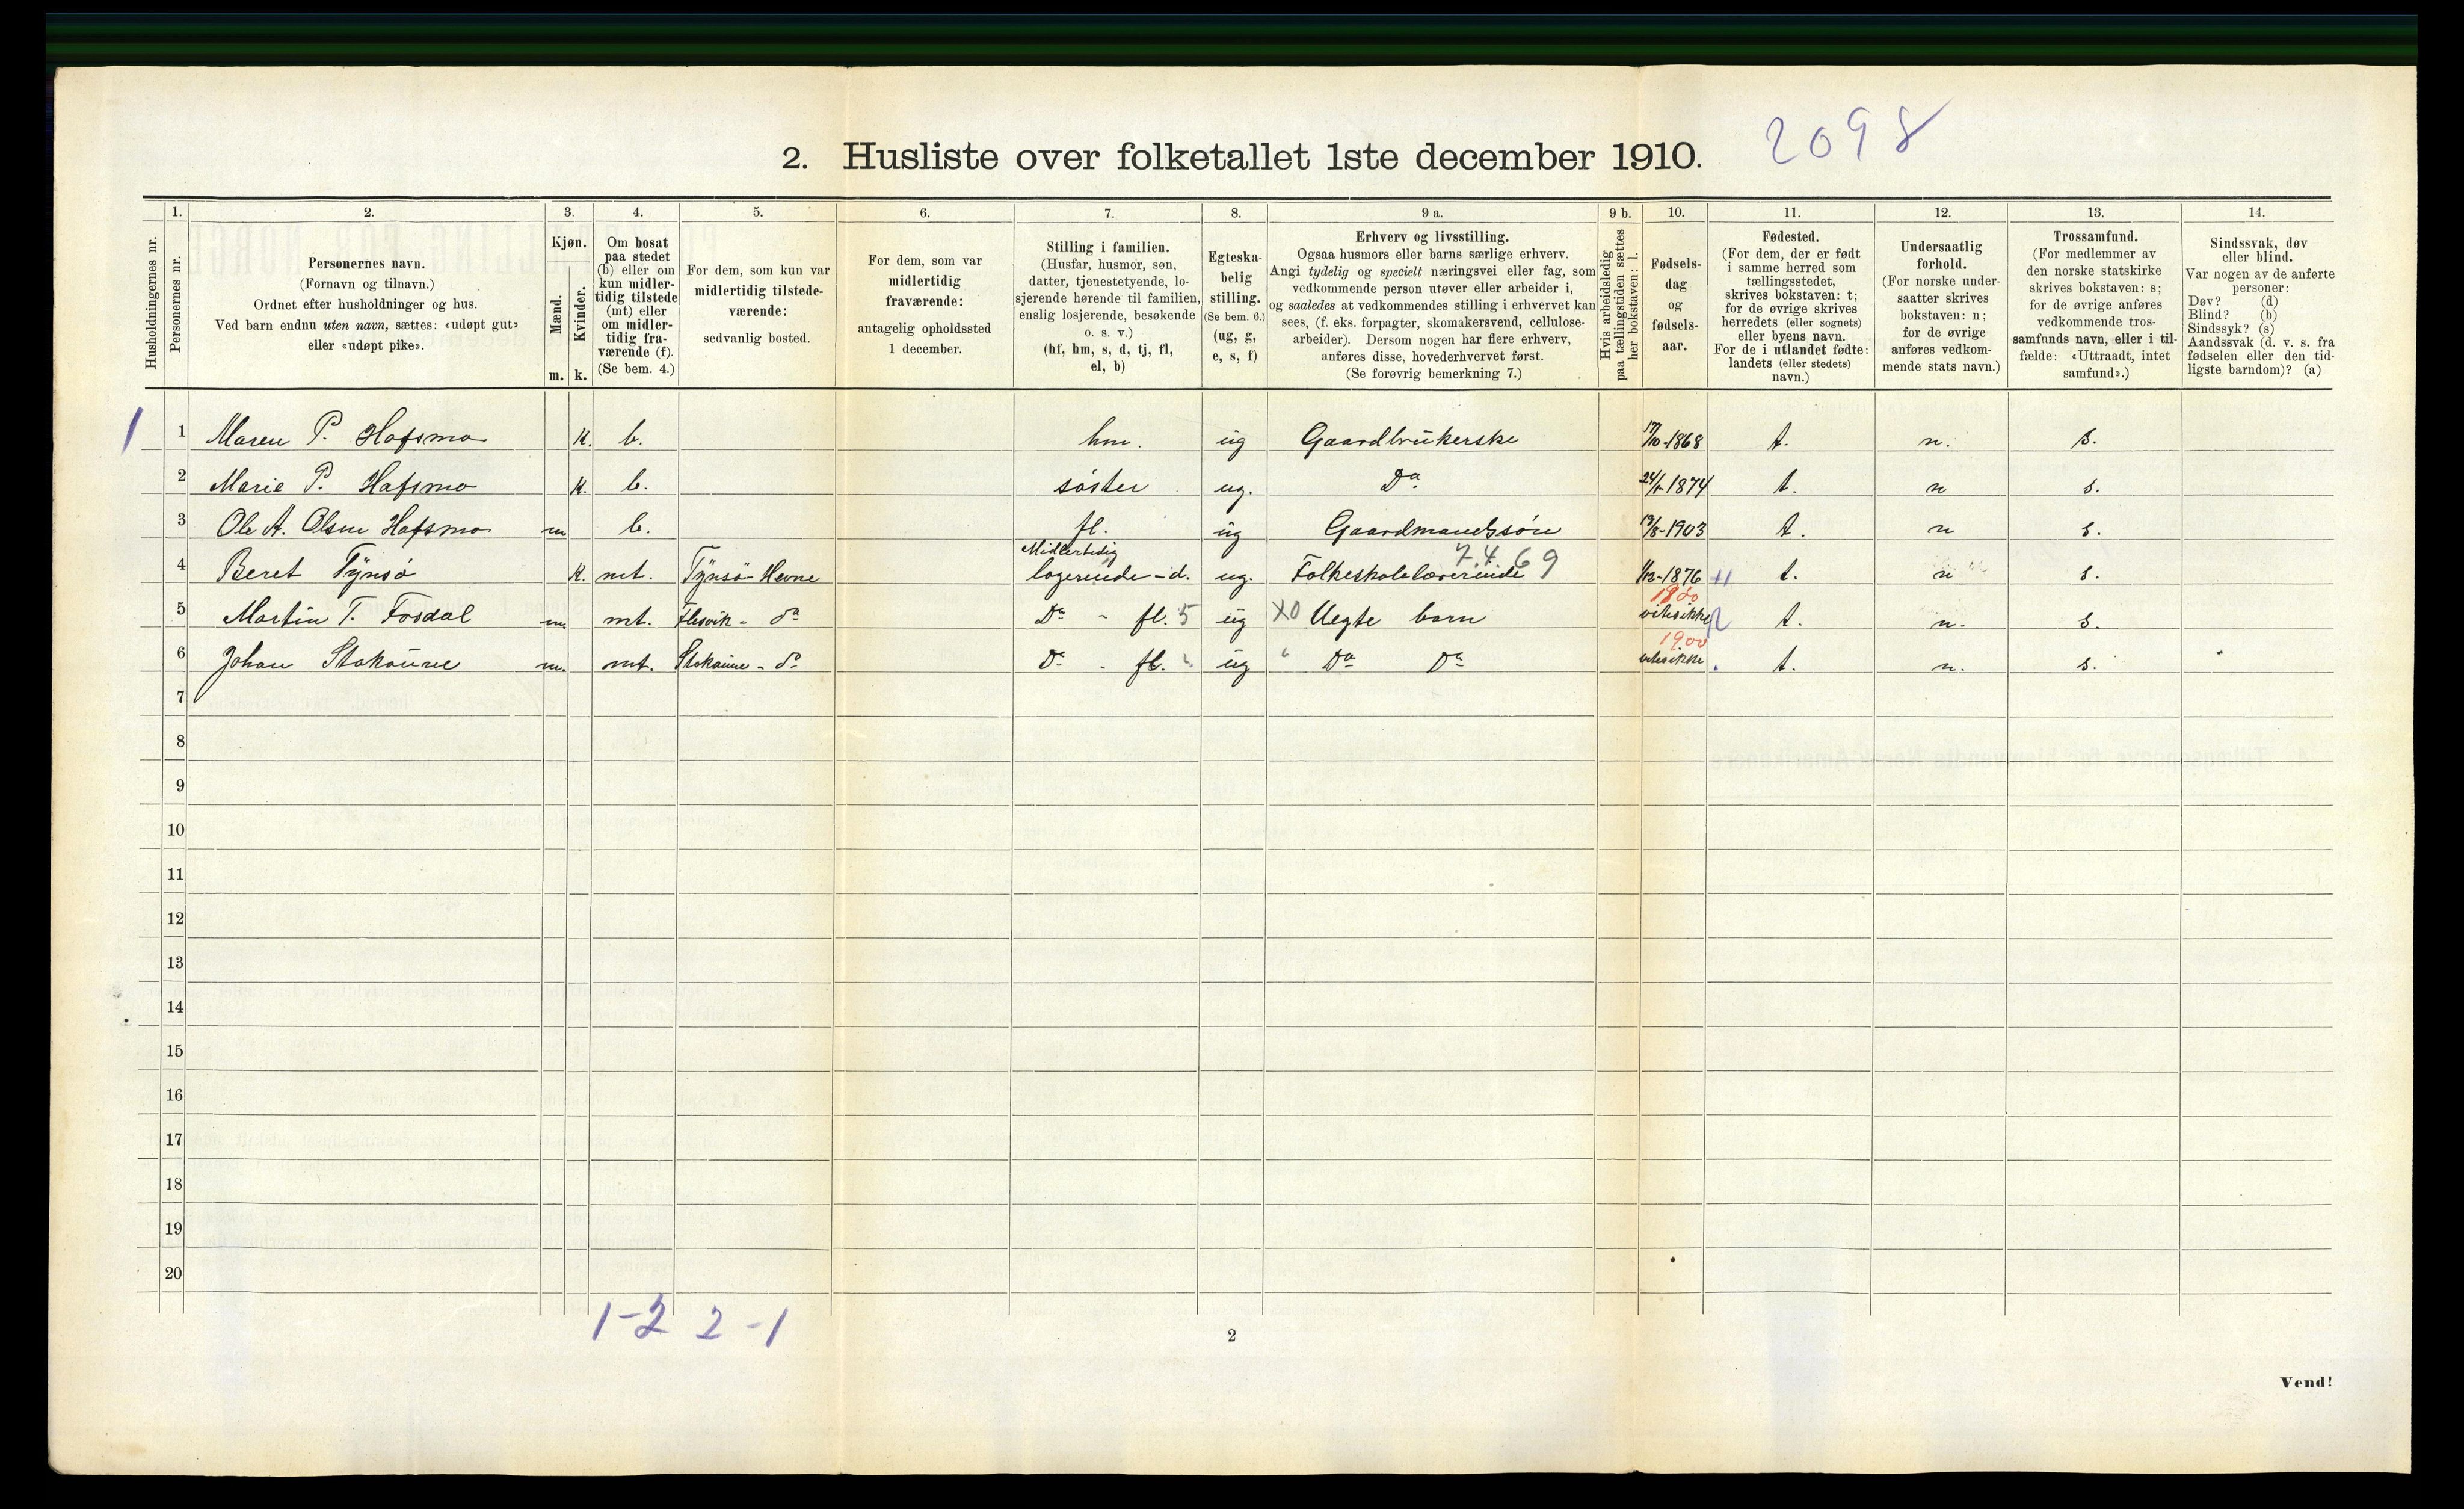 2098
2. Husliste over folketallet 1ste december 1910.
Husholdningernes nr.
1.
Personernes nr.
2.
Personernes navn.
(Fornavn og tilnavn.)
Ordnet efter husholdninger og hus.
Ved barn endnu uten navn, sættes: «udøpt gut»
eller «udøpt pike».
3.
Kjøn.
Mænd.
Kvinder.
m. k.
4.
Om bosat
paa stedet
(b) eller om
kun midler-
tidig tilstede
(mt) eller
om midler-
tidig fra-
værende (f).
(Se bem. 4.)
5.
For dem, som kun var
midlertidig tilstede-
værende:
sedvanlig bosted.
6.
For dem, som var
midlertidig
fraværende:
antagelig opholdssted
1 december.
7.
Stilling i familien.
(Husfar, husmor, søn,
datter, tjenestetyende, lo-
sjerende hørende til familien,
enslig losjerende, besøkende
o. s. v.)
(hf, hm, s, d, tj, fl,
el, b)
8.
Egteska-
belig
stilling.
(Se bem. 6.)
(ug, g,
e, s, f)
9 a.
Erhverv og livsstilling.
Ogsaa husmors eller barns særlige erhverv.
Angi tydelig og specielt næringsvei eller fag, som
vedkommende person utøver eller arbeider i,
og saaledes at vedkommendes stilling i erhvervet kan
sees, (f. eks. forpagter, skomakersvend, cellulose-
arbeider). Dersom nogen har flere erhverv,
anføres disse, hovederhvervet først.
(Se forøvrig bemerkning 7.)
9 b.
Hvis arbeidsledig
paa tællingstiden sættes
her bokstaven: l.
10.
Fødsels-
dag
og
fødsels-
aar.
11.
Fødested.
(For dem, der er født
i samme herred som
tællingsstedet,
skrives bokstaven: t;
for de øvrige skrives
herredets (eller sognets)
eller byens navn.
For de i utlandet fødte:
landets (eller stedets)
navn.)
12.
Undersaatlig
forhold.
(For norske under-
saatter skrives
bokstaven: n;
for de øvrige
anføres vedkom-
mende stats navn.)
13.
Trossamfund.
(For medlemmer av
den norske statskirke
skrives bokstaven: s;
for de øvrige anføres
vedkommende tros-
samfunds navn, eller i til-
fælde: «Uttraadt, intet
samfund».)
14.
Sindssvak, døv
eller blind.
Var nogen av de anførte
personer:
Døv? (d)
Blind? (b)
Sindssyk? (s)
Aandssvak (d. v. s. fra
fødselen eller den tid-
ligste barndom)? (a)
1 1 Maren P. Hafsmo k. b. hm. ug Gaardbrukerske 17/10-1868 t. n. s.
2 Marie P. Hafsmo k. b. søster ug. Do 1874 t. n s.
3 Ole A. Olsen Hafsmo m b. fl. ug Gaardmandssøn 19/8-1903 t. n s.
Midlertidig 7.4 69
4 Beret Tynsø k. mt. Tynsø - Hevne logerende - d. ug. Folkeskolelærerinde 1/12-1876 t. n s.
5 Martin T. Fosdal m. mt. Flesvik - do Do - fl. 5 ug XO Uegte barn vites ikke t. n. s.
1900
6 Johan Stakaune m. mt. Stakaune - do Do - fl. ug Do Do vites ikke t. n. s.
7
8
9
10
11
12
13
14
15
16
17
18
19
20
1-2 2-1
2
Vend!